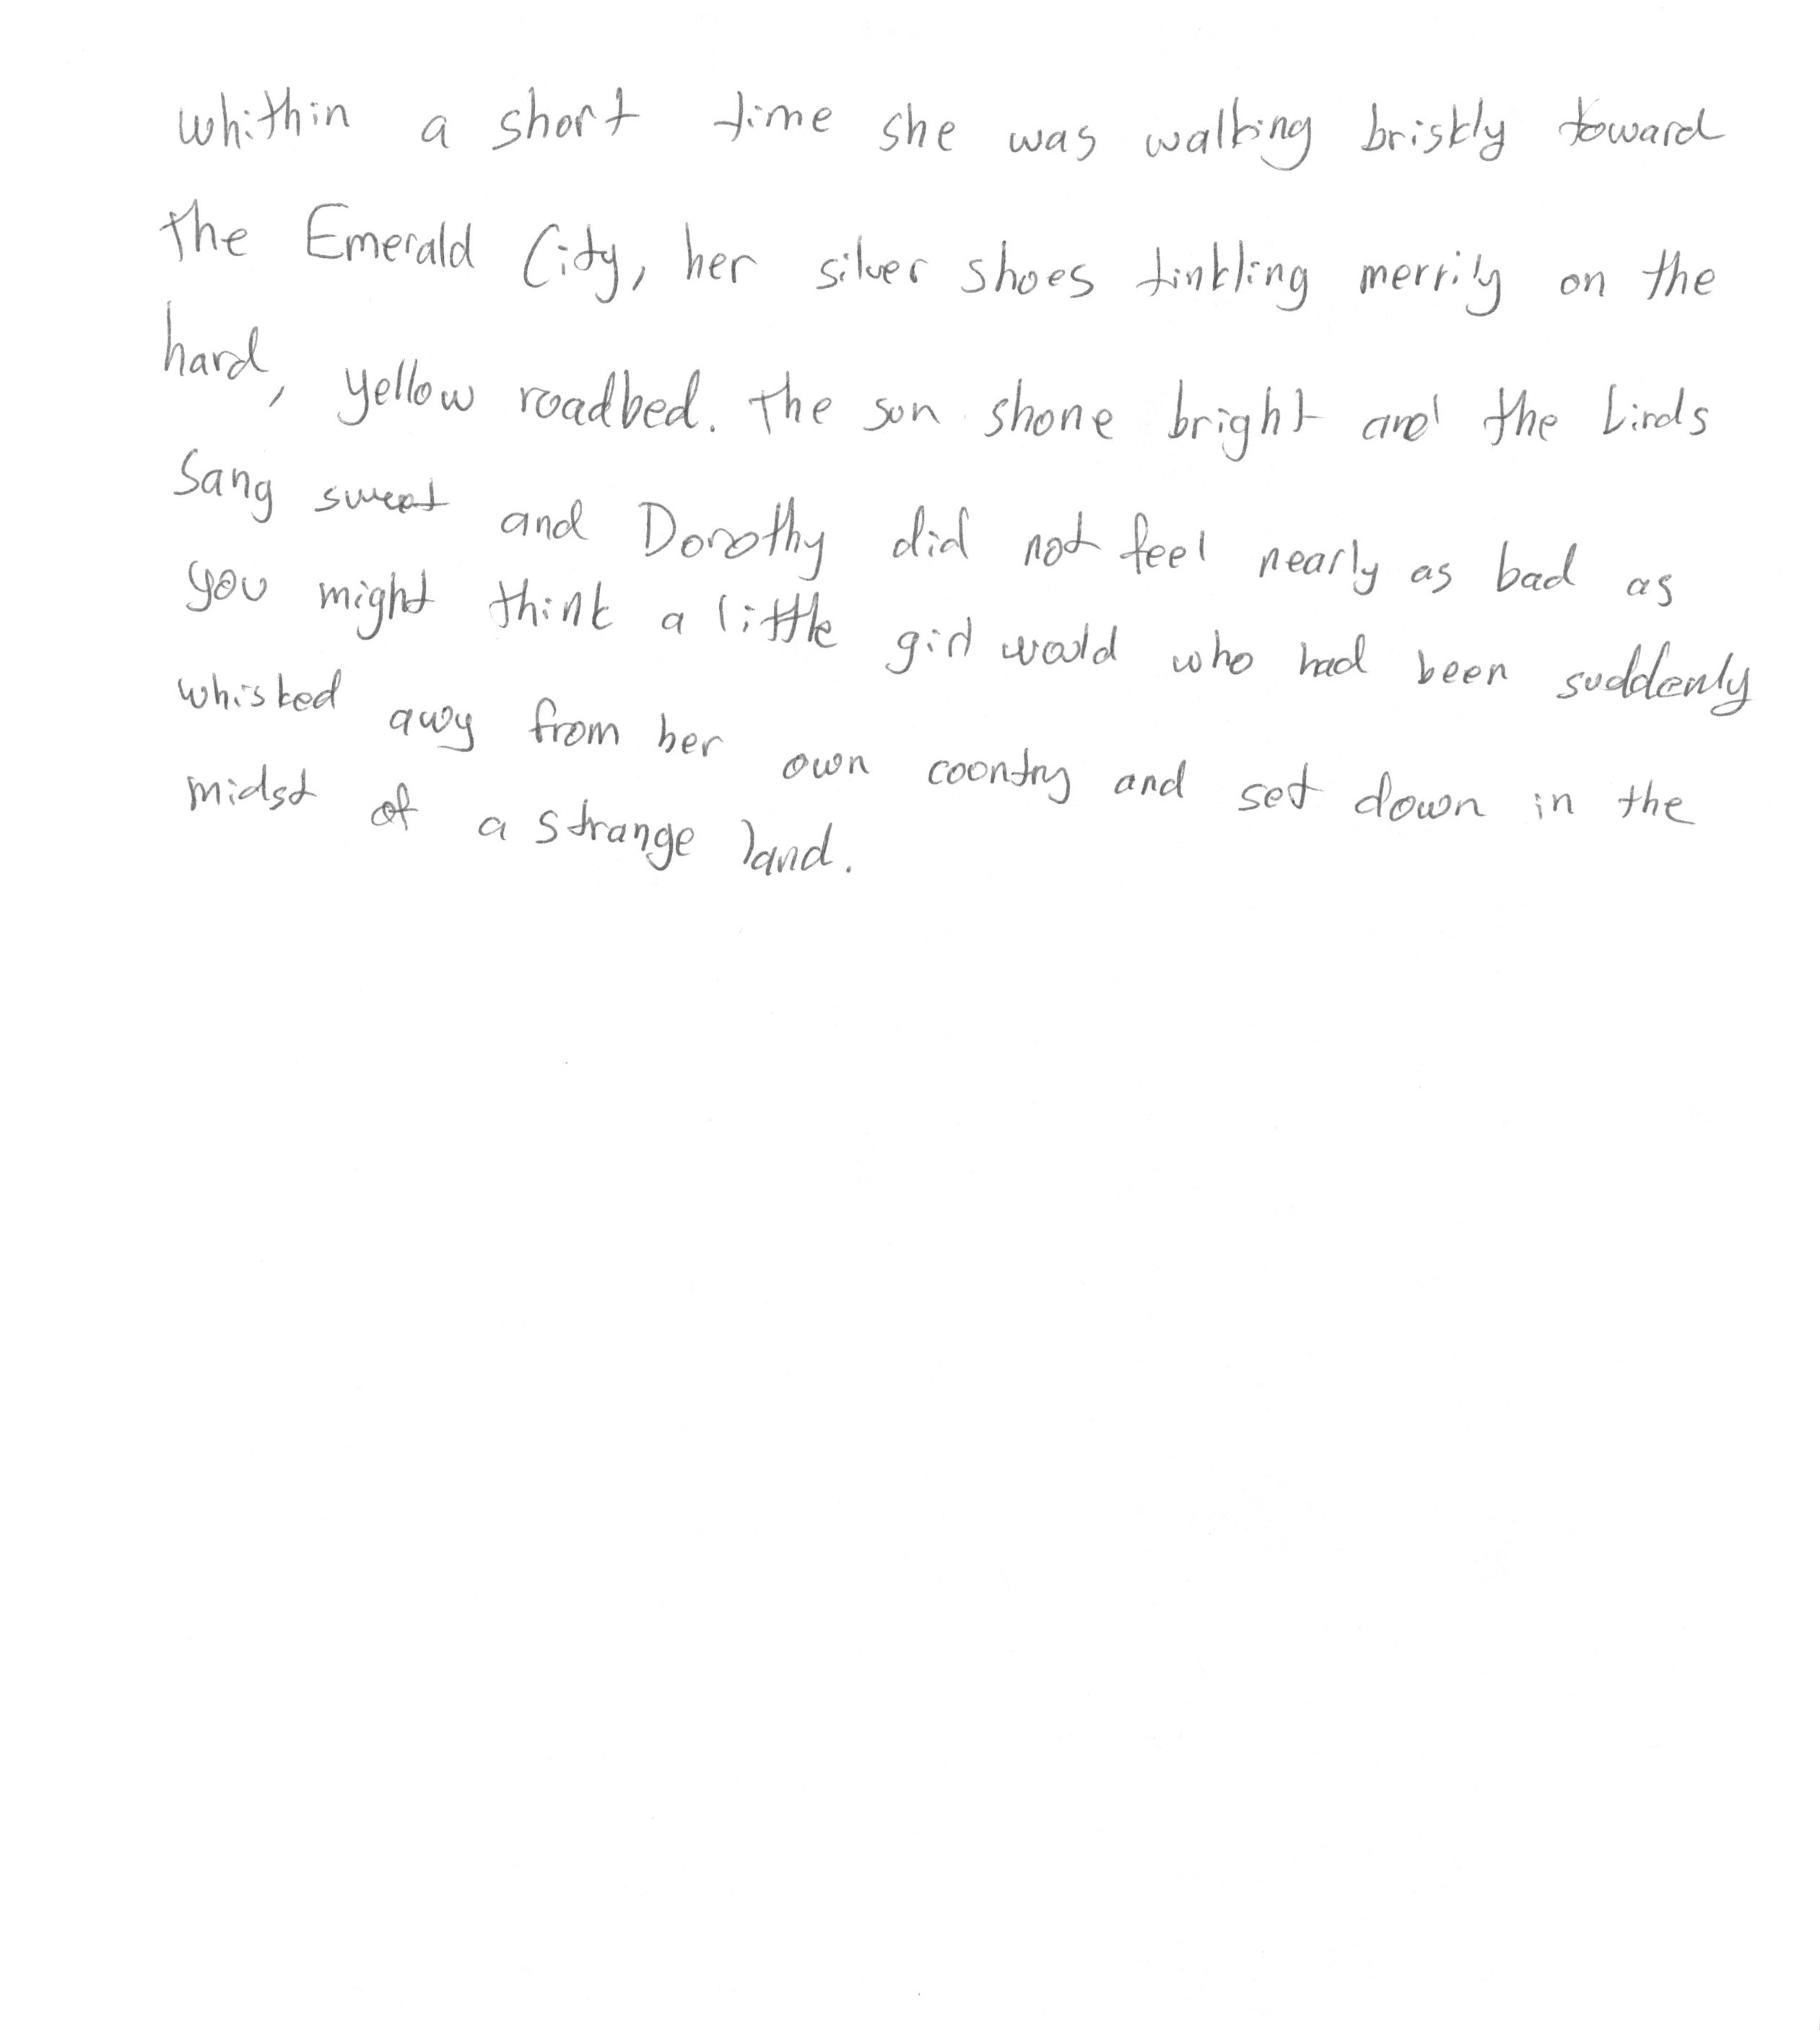 whithin a short time she was walking briskly toward
the Emerald City, her silver shoes tinkling merrily on the
hard, yellow roadbed. the sun shone bright and the birds
sang sweet and Dorothy did not feel nearly as bad as
you might think a little girl would who had been suddenly
whisked away from her own coontry and set down in the
midst of a strange land.